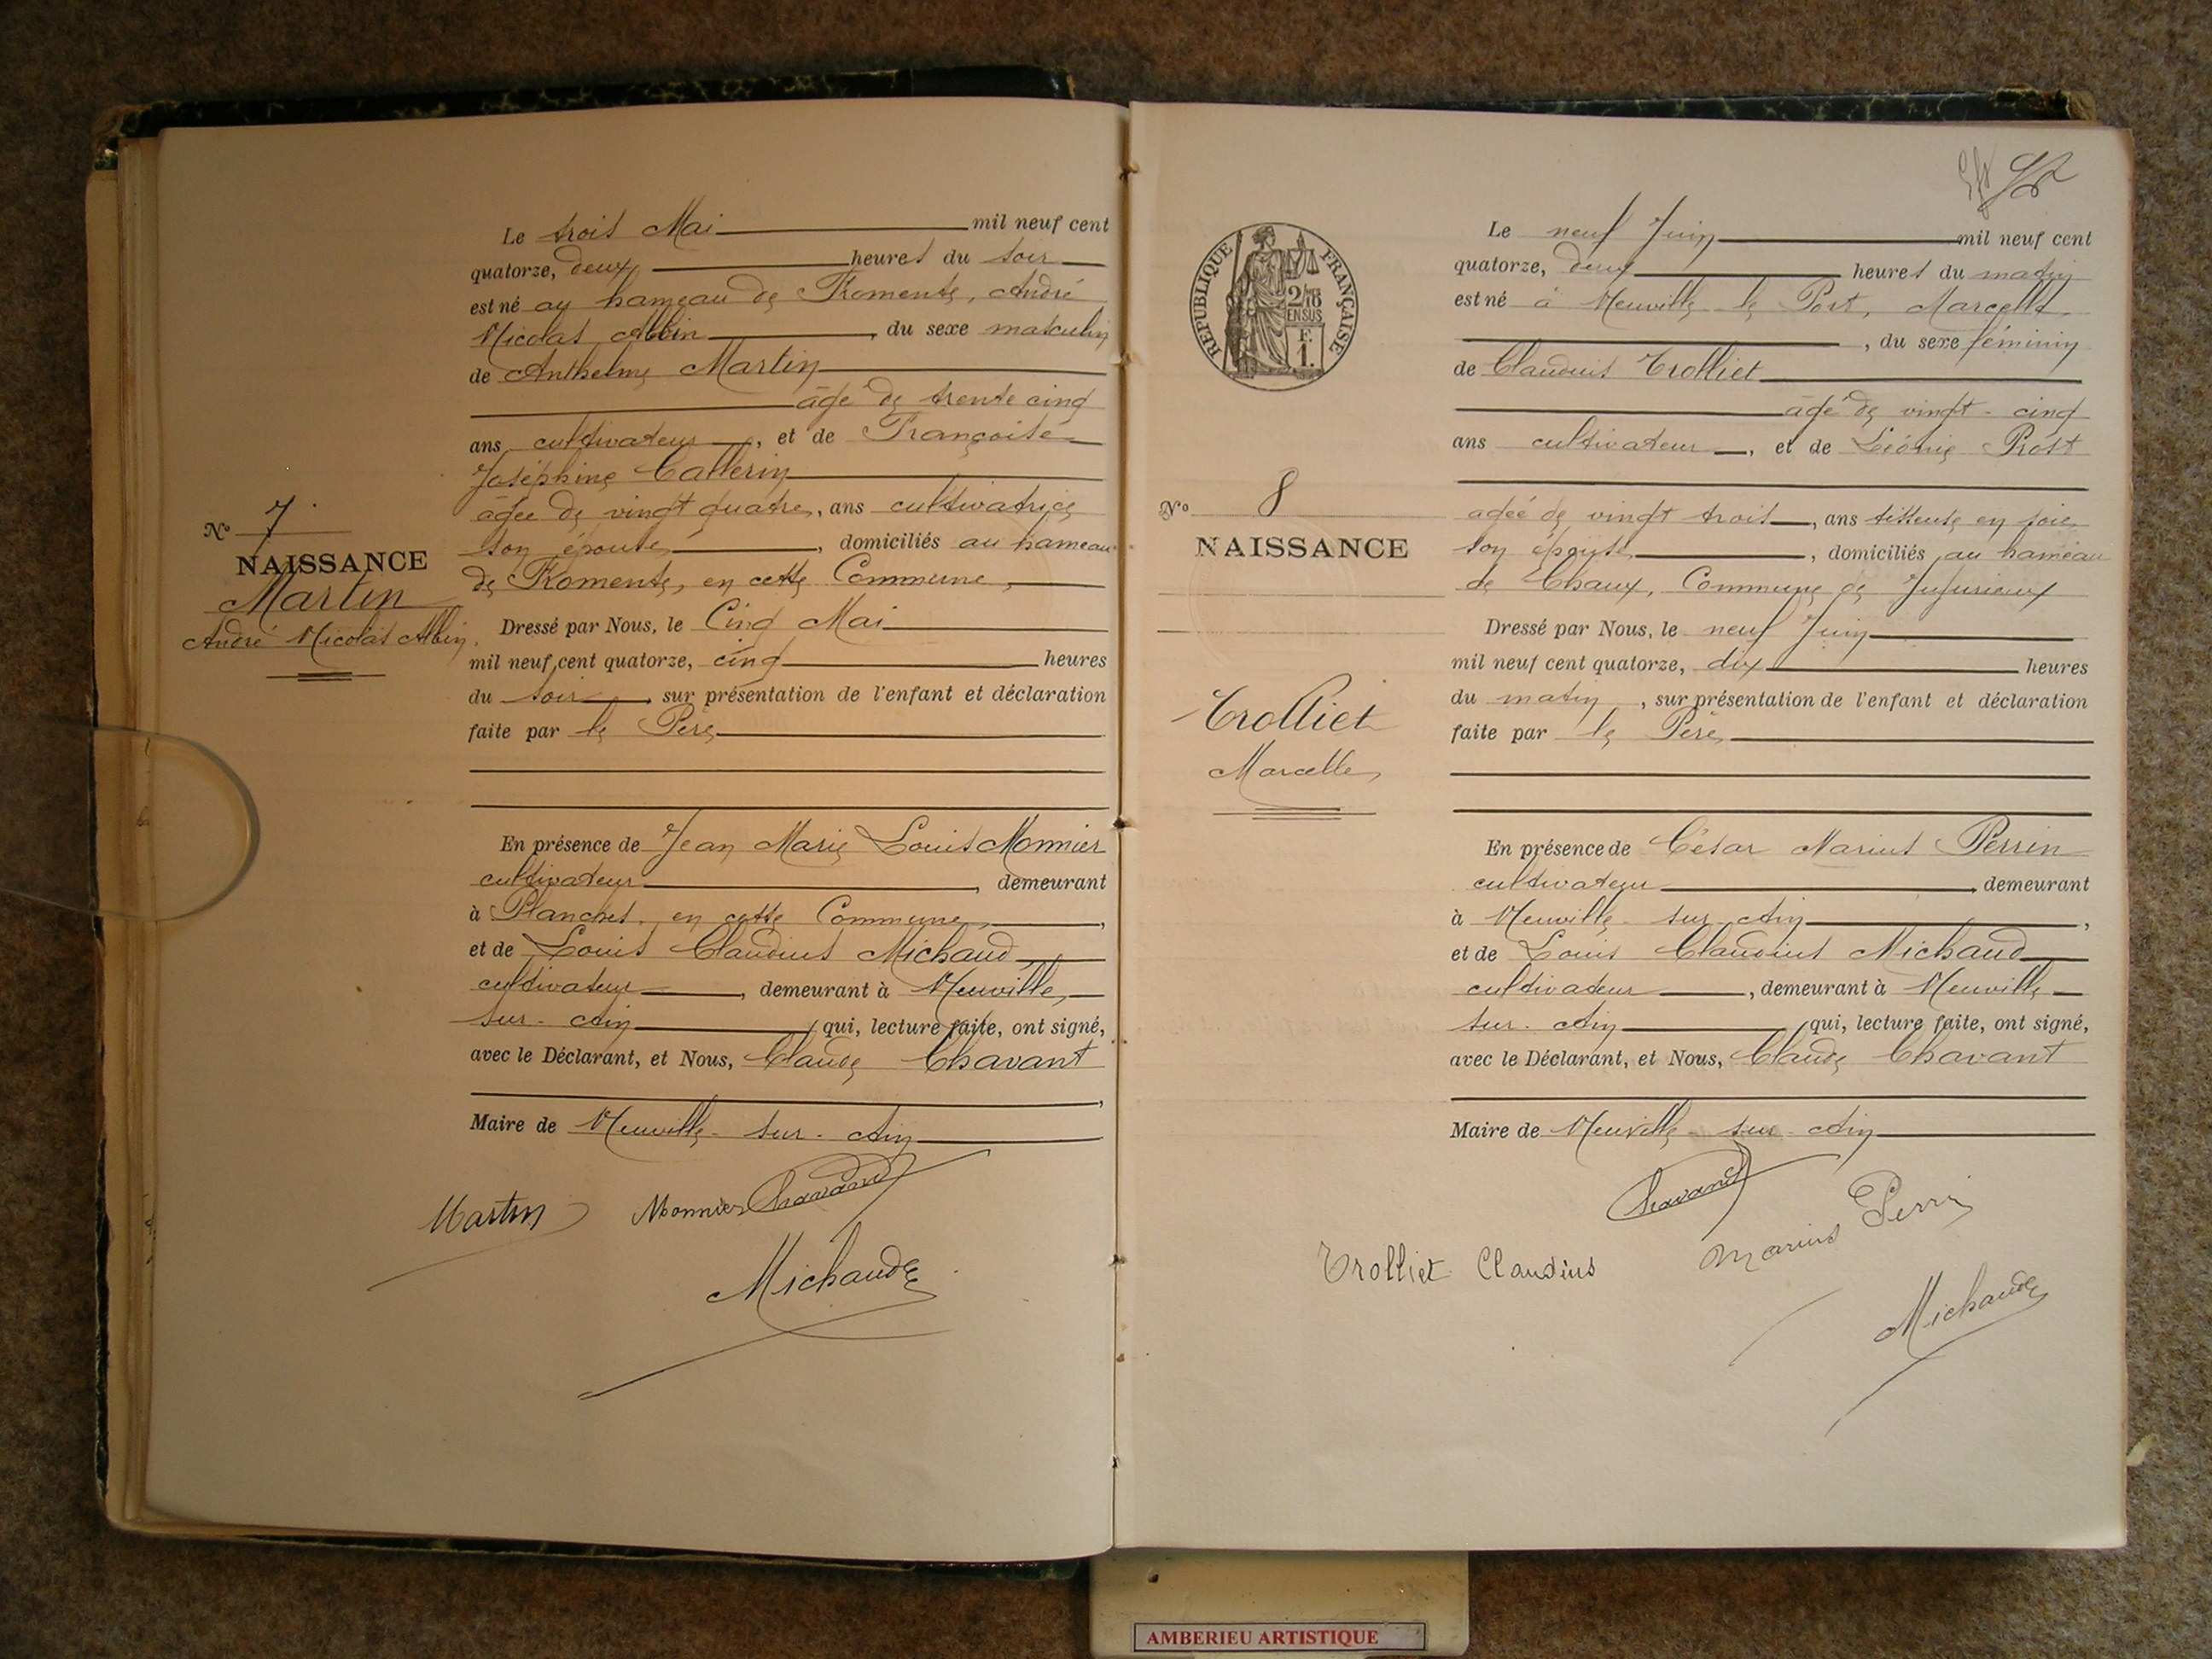 Le trois Mai mil neuf cent
quatorze, deux heures du soir
est né au hameau de Romente, André
Nicolas Albin, du sexe masculin
de Anthelme Martin
âgé de trente cinq
ans cultivateur, et de Françoise
Joséphine
âgée de vingt quatre, ans cultivatrice
son épouse, domiciliés au hameau
de Romente, en cette Commune,
Nº 7
NAISSANCE
Martin
André Nicolas Albin.
Dressé par Nous, le Cinq Mai
mil neuf cent quatorze, cinq heures
du soir, sur présentation de l'enfant et déclaration
faite par le Père
En présence de Jean Marie Louis Monnier
cultivateur, demeurant
à Planches, en cette Commune,
et de Louis Claudius Michaud,
cultivateur, demeurant à Neuville
sur-Ain qui, lecture faite, ont signé,
avec le Déclarant, et Nous, Claude Chavant
Maire de Neuville-sur-Ain
Martin Monnier Chavant
Michaud
REPUBLIQUE FRANÇAISE
2/10
EN SUS
F.
1.
Le neuf Juin mil neuf cent
quatorze, deux heures du matin
est né à Neuville le Port, Marcelle,
, du sexe féminin
de Claudius Trolliet
âgé de vingt-cinq
ans cultivateur, et de Léonie Prost
agée de vingt trois, ans tisseuse en soie
son épouse, domiciliés au hameau
de Chaux, Commune de Jujurieux
Nº 8
NAISSANCE
Trolliet
Marcelle
Dressé par Nous, le neuf Juin
mil neuf cent quatorze, dix heures
du matin, sur présentation de l'enfant et déclaration
faite par le Père
En présence de César Marius Perrin
cultivateur, demeurant
à Neuville-sur-Ain,
et de Louis Claudius Michaud
cultivateur, demeurant à Neuville
sur-Ain qui, lecture faite, ont signé,
avec le Déclarant, et Nous, Claude Chavant
Maire de Neuville-sur-Ain
Chavant
Trolliet Claudius Marius Perrin
Michaud
AMBERIEU ARTISTIQUE